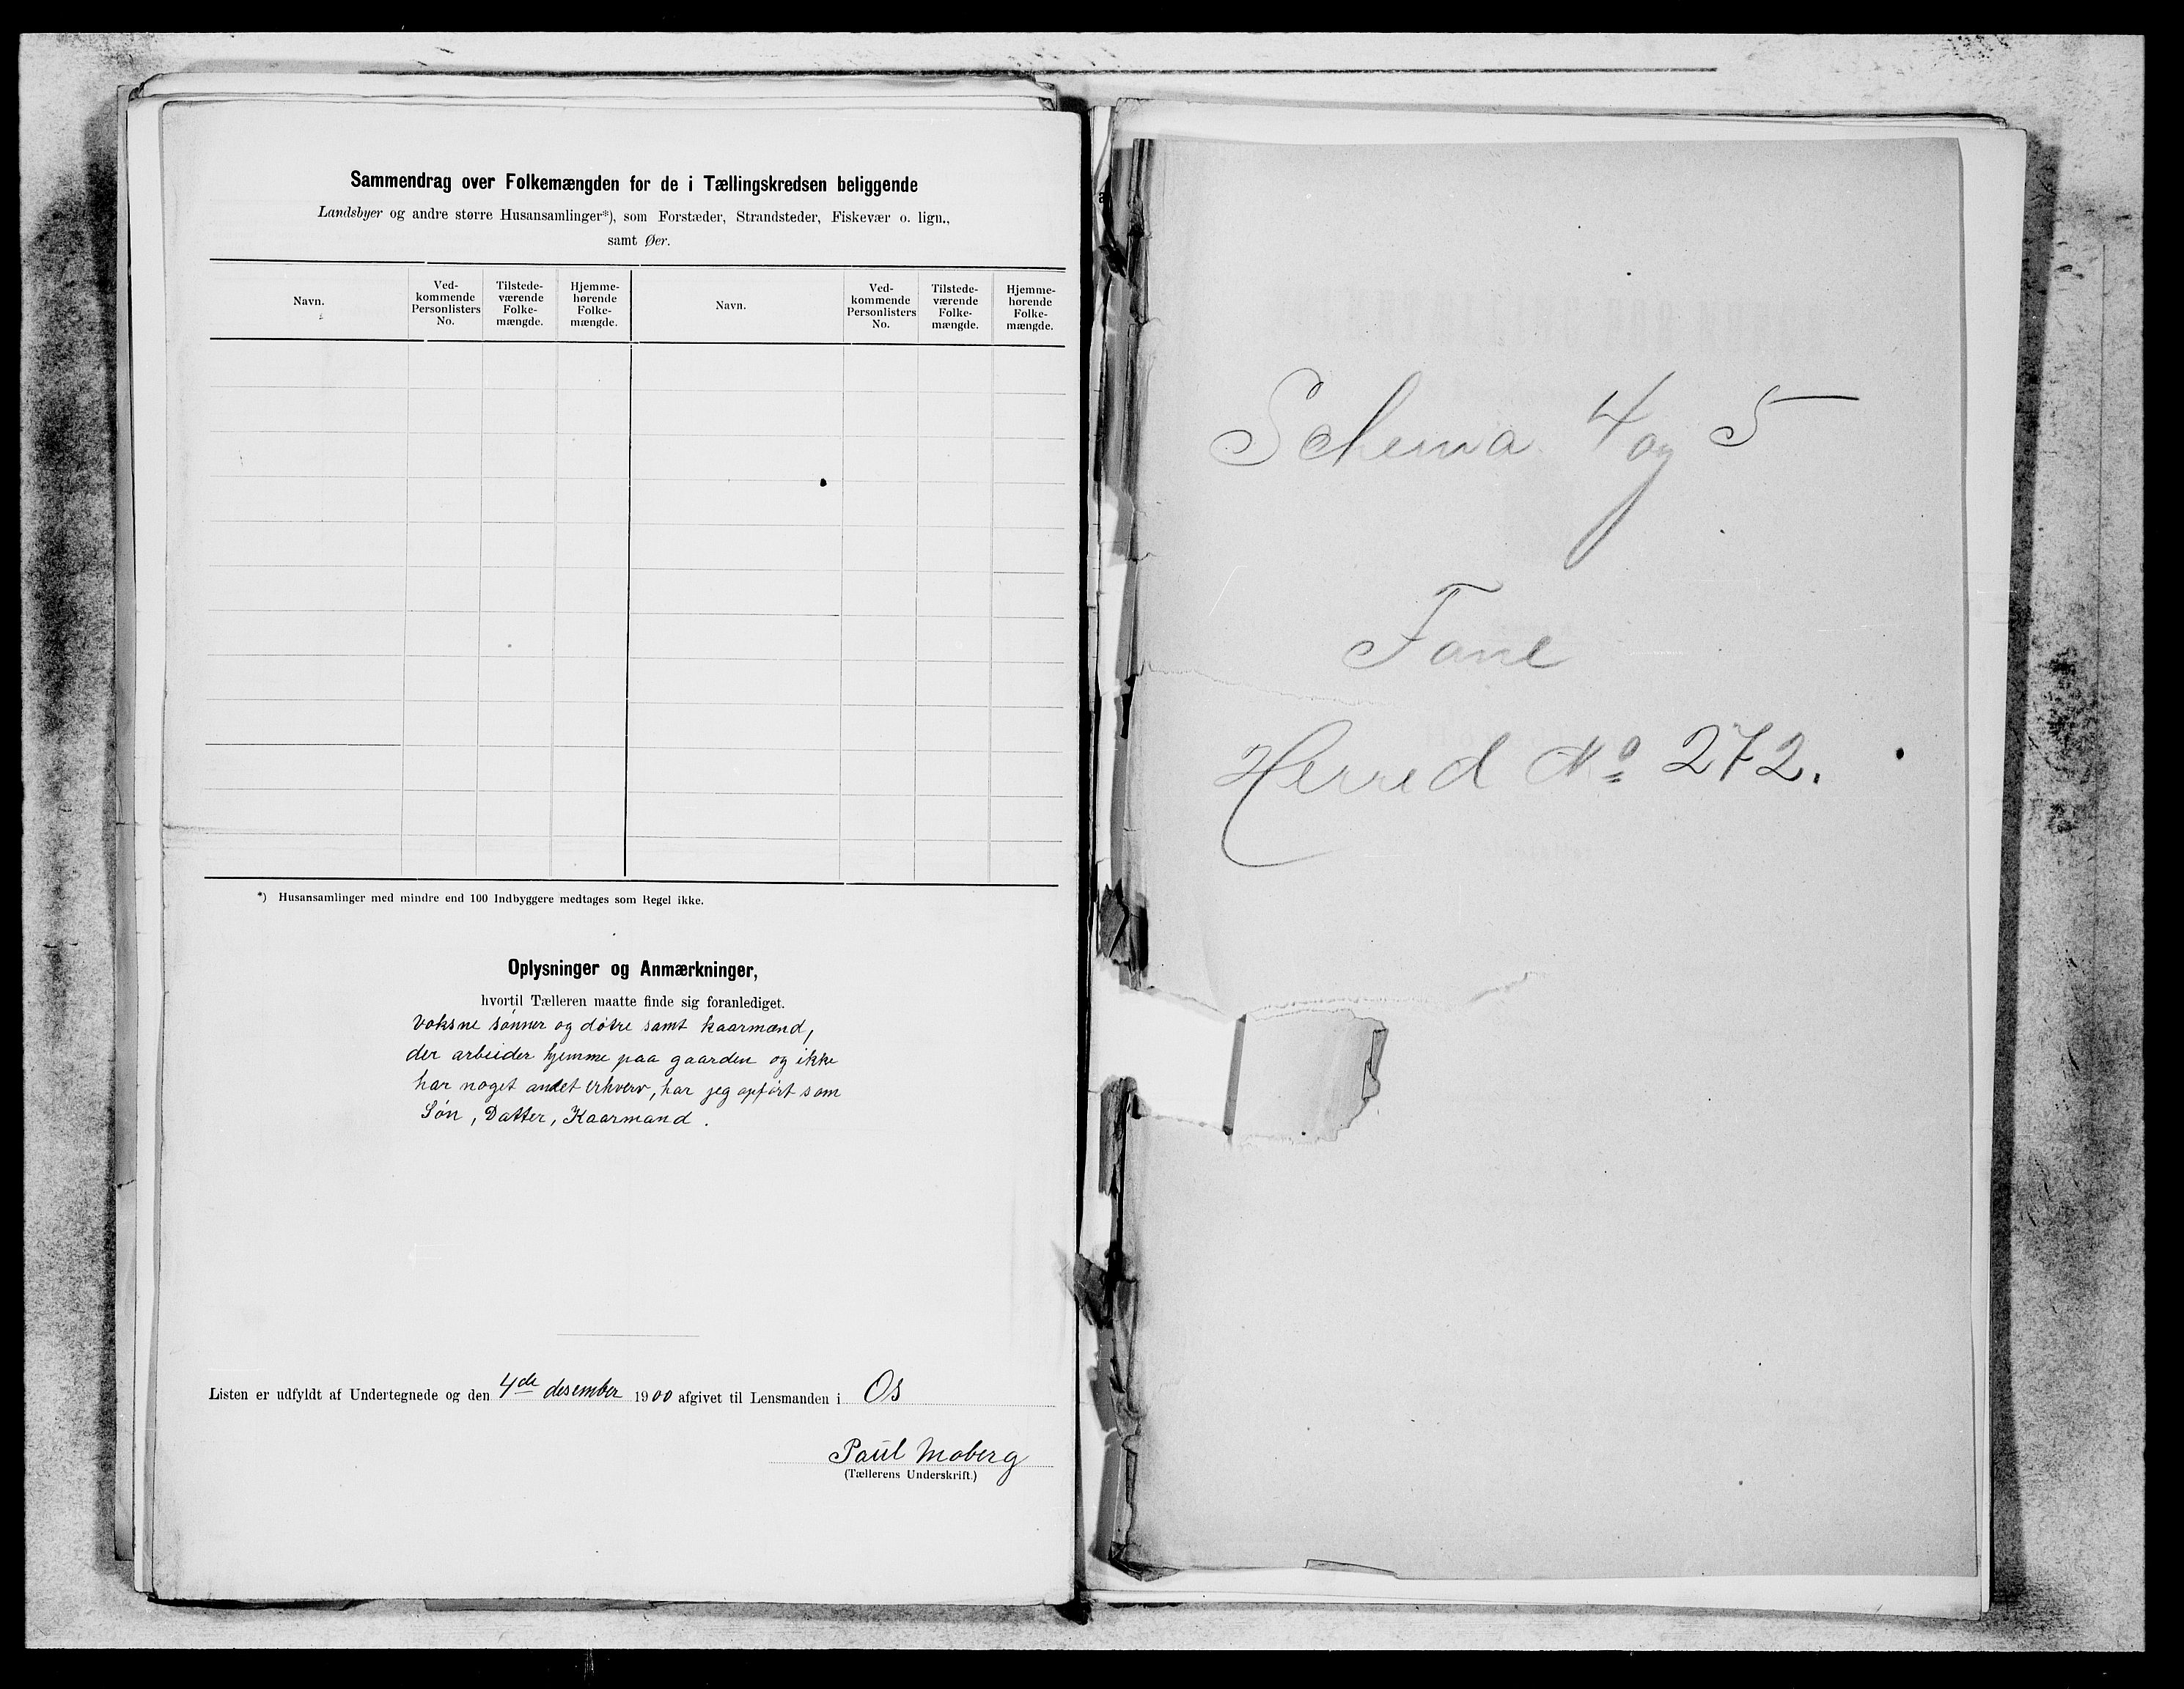 Sammendrag over Folkemængden for de i Tællingskredsen beliggende
Landsbyer og andre større Husansamlinger*), som Forstæder, Strandsteder, Fiskevær o. lign.,
samt Øer.
Navn.
Ved-
kommende
Personlisters
No.
Tilstede-
værende
Folke-
mængde.
Hjemme-
hørende
Folke-
mængde.
Navn.
Ved-
kommende
Personlisters
No.
Tilstede-
værende
Folke-
mængde.
Hjemme-
hørende
Folke-
mængde.
*) Husansamlinger med mindre end 100 Indbyggere medtages som Regel ikke.
Oplysninger og Anmærkninger,
hvortil Tælleren maatte finde sig foranlediget.
Voksne sønner og døtre samt kaarmænd,
der arbeider hjemme paa gaarden og ikke
har noget andet erhverv, har jeg opført som
Søn, Datter, Kaarmand.
Listen er udfyldt af Undertegnede og den 4de desember 1900 afgivet til Lensmanden i Os
Paul Moberg
(Tællerens Underskrift.)
Schema 4 og 5
Fane
Herred No 272.